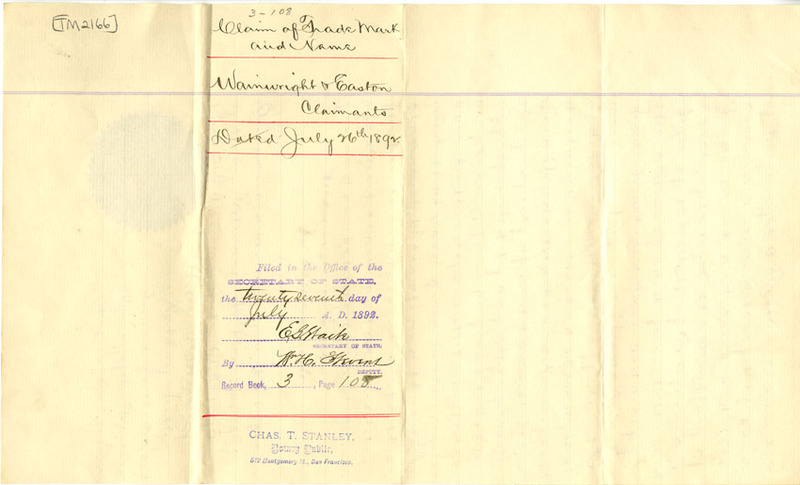 [TM2166]
3-108
Claim of Trade Mark
and Name
Wainwright & Easton
Claimants
Dated July 26th 1892
Filed in the Office of the
SECRETARY OF STATE,
the twenty seventh day of
July A. D. 1892.
E G Waite
SECRETARY OF STATE,
By W. H. Stevens
DEPUTY.
Record Book, 3, Page 108
CHAS. T. STANLEY,
Notary Public,
Montgomery St., San Francisco.